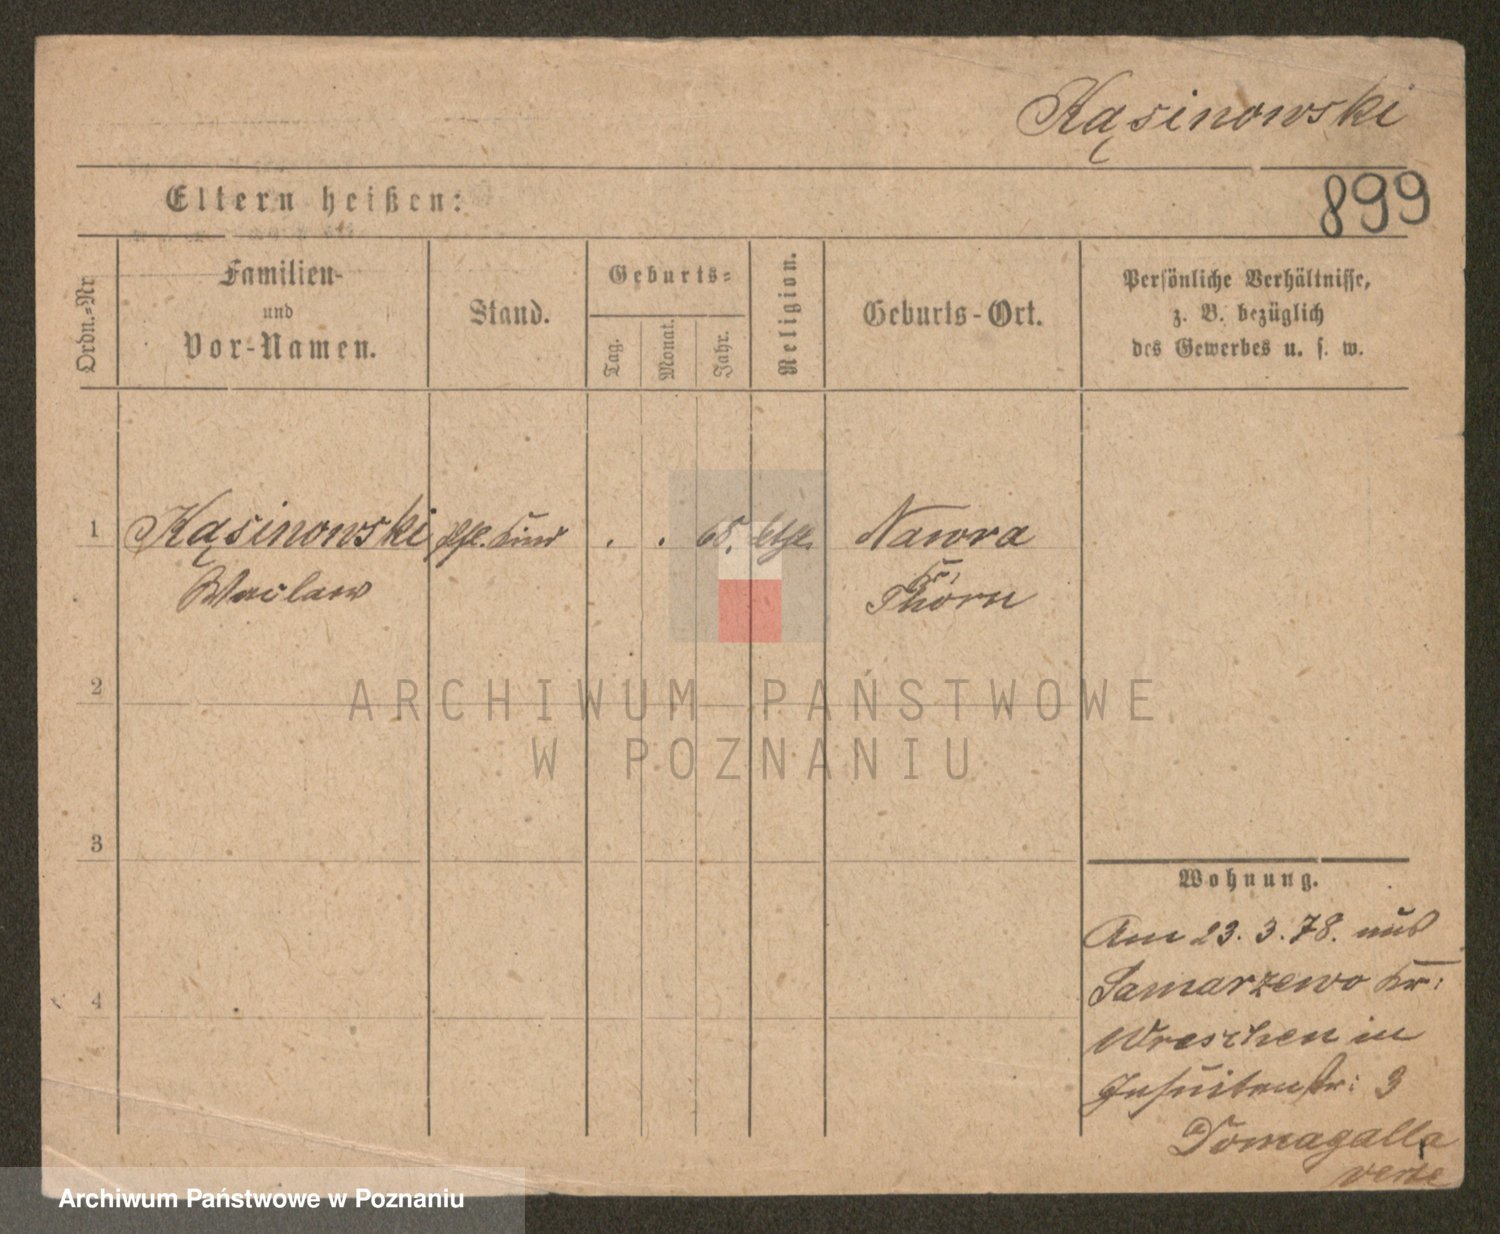 Kąsinowski
899
Eltern heißen:
Ordn.-Nr
Familien-
und
Vor-Namen.
Stand.
Geburts-
Tag.
Monat.
Jahr.
Religion.
Geburts-Ort.
Persönliche Verhältnisse,
z. B. bezüglich
des Gewerbes u. s. w.
1
Kąsinowski
Kind
. . 65.
Nawra
Waclaw
Kr.
Thorn
2
ARCHIWUM PAŃSTWOWE
W POZNANIU
3
Wohnung.
4
Am 23. 3. 78. aus
Samarzewo Kr:
Wreschen in
Jesuitenstr: 3
Domagalla
verte
Archiwum Państwowe w Poznaniu